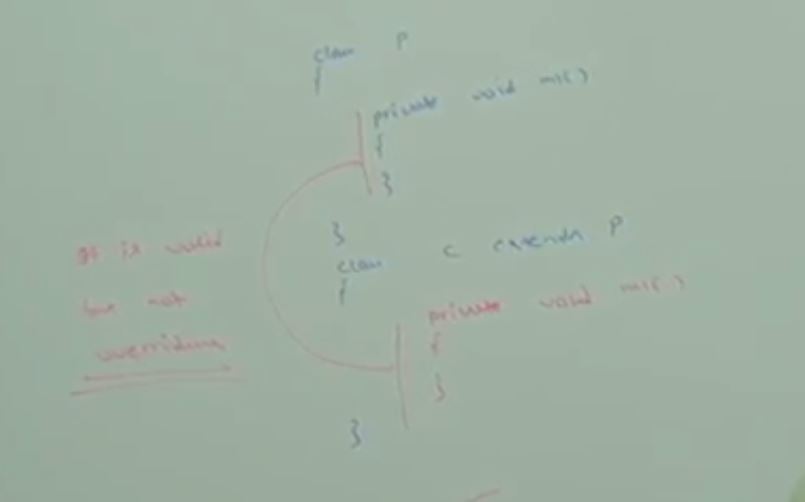 class P
{
private void m1()
{
}
}
class C extends P
{
private void m1()
{
}
}
It is valid
but not
overriding